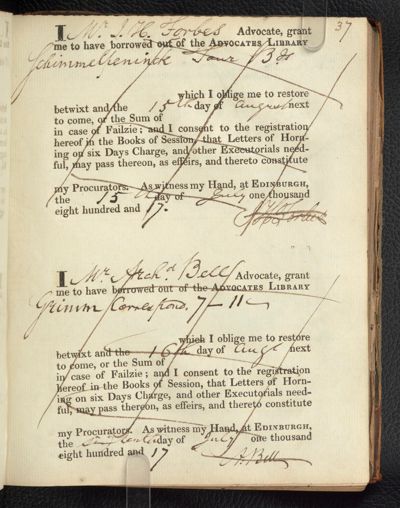 37
I Mr. J. H. Forbes Advocate, grant
me to have borrowed out of the ADVOCATES LIBRARY
Schimmelpeninck Four
which I oblige me to restore
betwixt and the 15th day of August next
to come, or the Sum of
in case of Failzie; and I consent to the registration
hereof in the Books of Session, that Letters of Horn-
ing on six Days Charge, and other Executorials need-
ful, may pass thereon, as effeirs, and thereto constitute
my Procurators. As witness my Hand, at EDINBURGH,
the 15 day of July one thousand
eight hundred and 17.
J H Forbes
I Mr. Archd. Bell Advocate, grant
me to have borrowed out of the ADVOCATES LIBRARY
Grimm Correspond. 7-11
which I oblige me to restore
betwixt and the 16th day of Augt next
to come, or the Sum of
in case of Failzie; and I consent to the registration
hereof in the Books of Session, that Letters of Horn-
ing on six Days Charge, and other Executorials need-
ful, may pass thereon, as effeirs, and thereto constitute
my Procurators. As witness my Hand, at EDINBURGH,
the day of July one thousand
eight hundred and 17
A. Bell